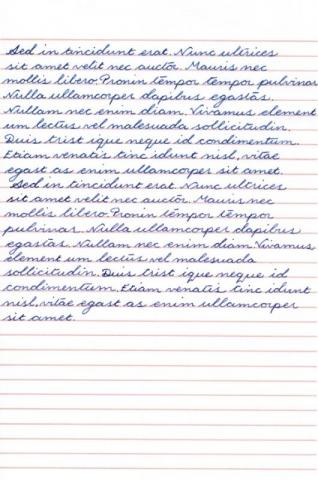 Sed in tincidunt erat. Nunc ultrices
sit amet velit nec auctor. Mauris nec
mollis libero. Pronin tempor tempor pulvinar
Nulla ullamcorper dapibus egastas.
Nullam nec enim diam. Vivamus element
um lectus vel malesuada sollicitudin.
Duis trist ique neque id condimentum.
Etiam venatis tinc idunt nisl, vitae
egast as enim ullamcorper sit amet.
Sed in tincidunt erat. Nunc ultrices
sit amet velit nec auctor. Mauris nec
mollis libero. Pronin tempor tempor
pulvinar. Nulla ullamcorper dapibus
egastas. Nullam nec enim diam. Vivamus
element um lectus vel malesuada
sollicitudin. Duis trist ique neque id
condimentum. Etiam venatis tinc idunt
nisl, vitae egast as enim ullamcorper
sit amet.